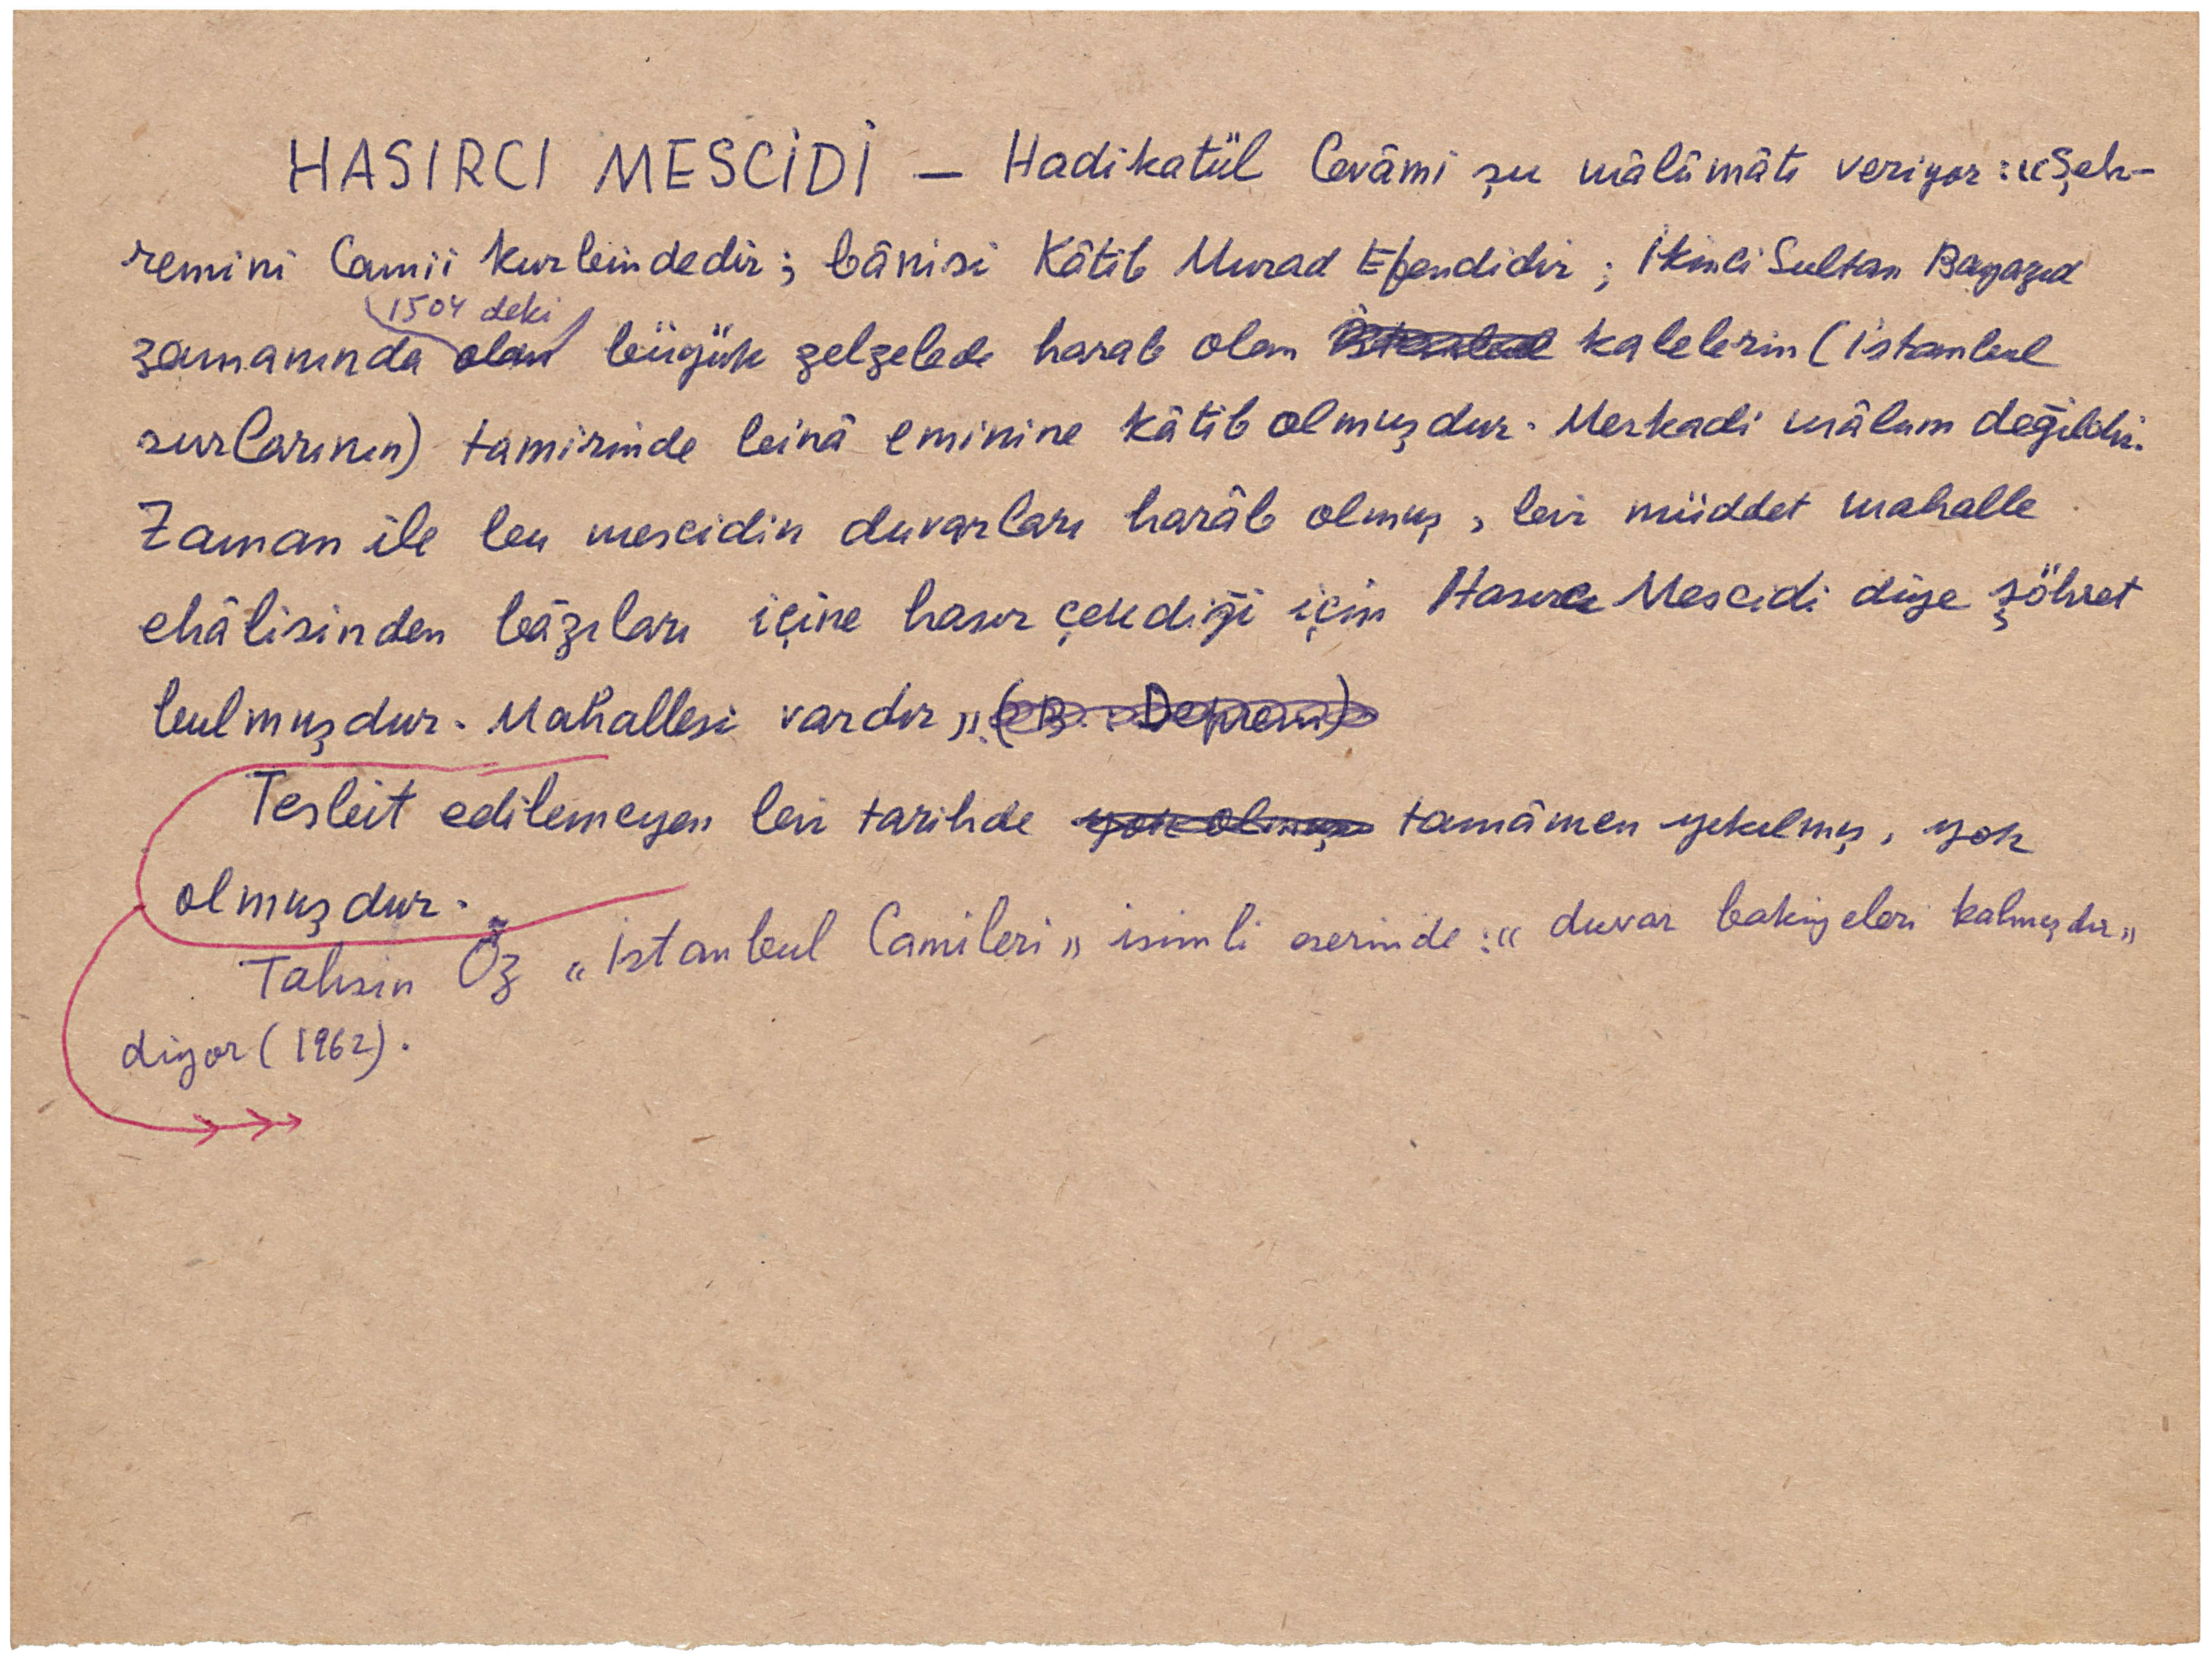 HASIRCI MESCİDİ — Hadikatül Cevâmi şu mâlûmâtı veriyor: «Şeh-
remini Camii kurbindedir; bânisi Kâtib Murad Efendidir; İkinci Sultan Bayazıd
1504 deki
zamanında olan büyük zelzelede harab olan İstanbul kalelerin (İstanbul
surlarının) tamirinde binâ eminine kâtib olmuşdur. Merkadi mâlum değildir.
Zaman ile bu mescidin duvarları harâb olmuş, bir müddet mahalle
ehâlisinden bâzıları içine hasır çekdiği için Hasırcı Mescidi diye şöhret
bulmuşdur. Mahallesi vardır» (B.: Deprem)
Tesbit edilemeyen bir tarihde yok olmuş tamâmen yıkılmış, yok
olmuşdur.
Tahsin Öz «İstanbul Camileri» isimli eserinde: «duvar bakiyeleri kalmışdır»
diyor (1962).